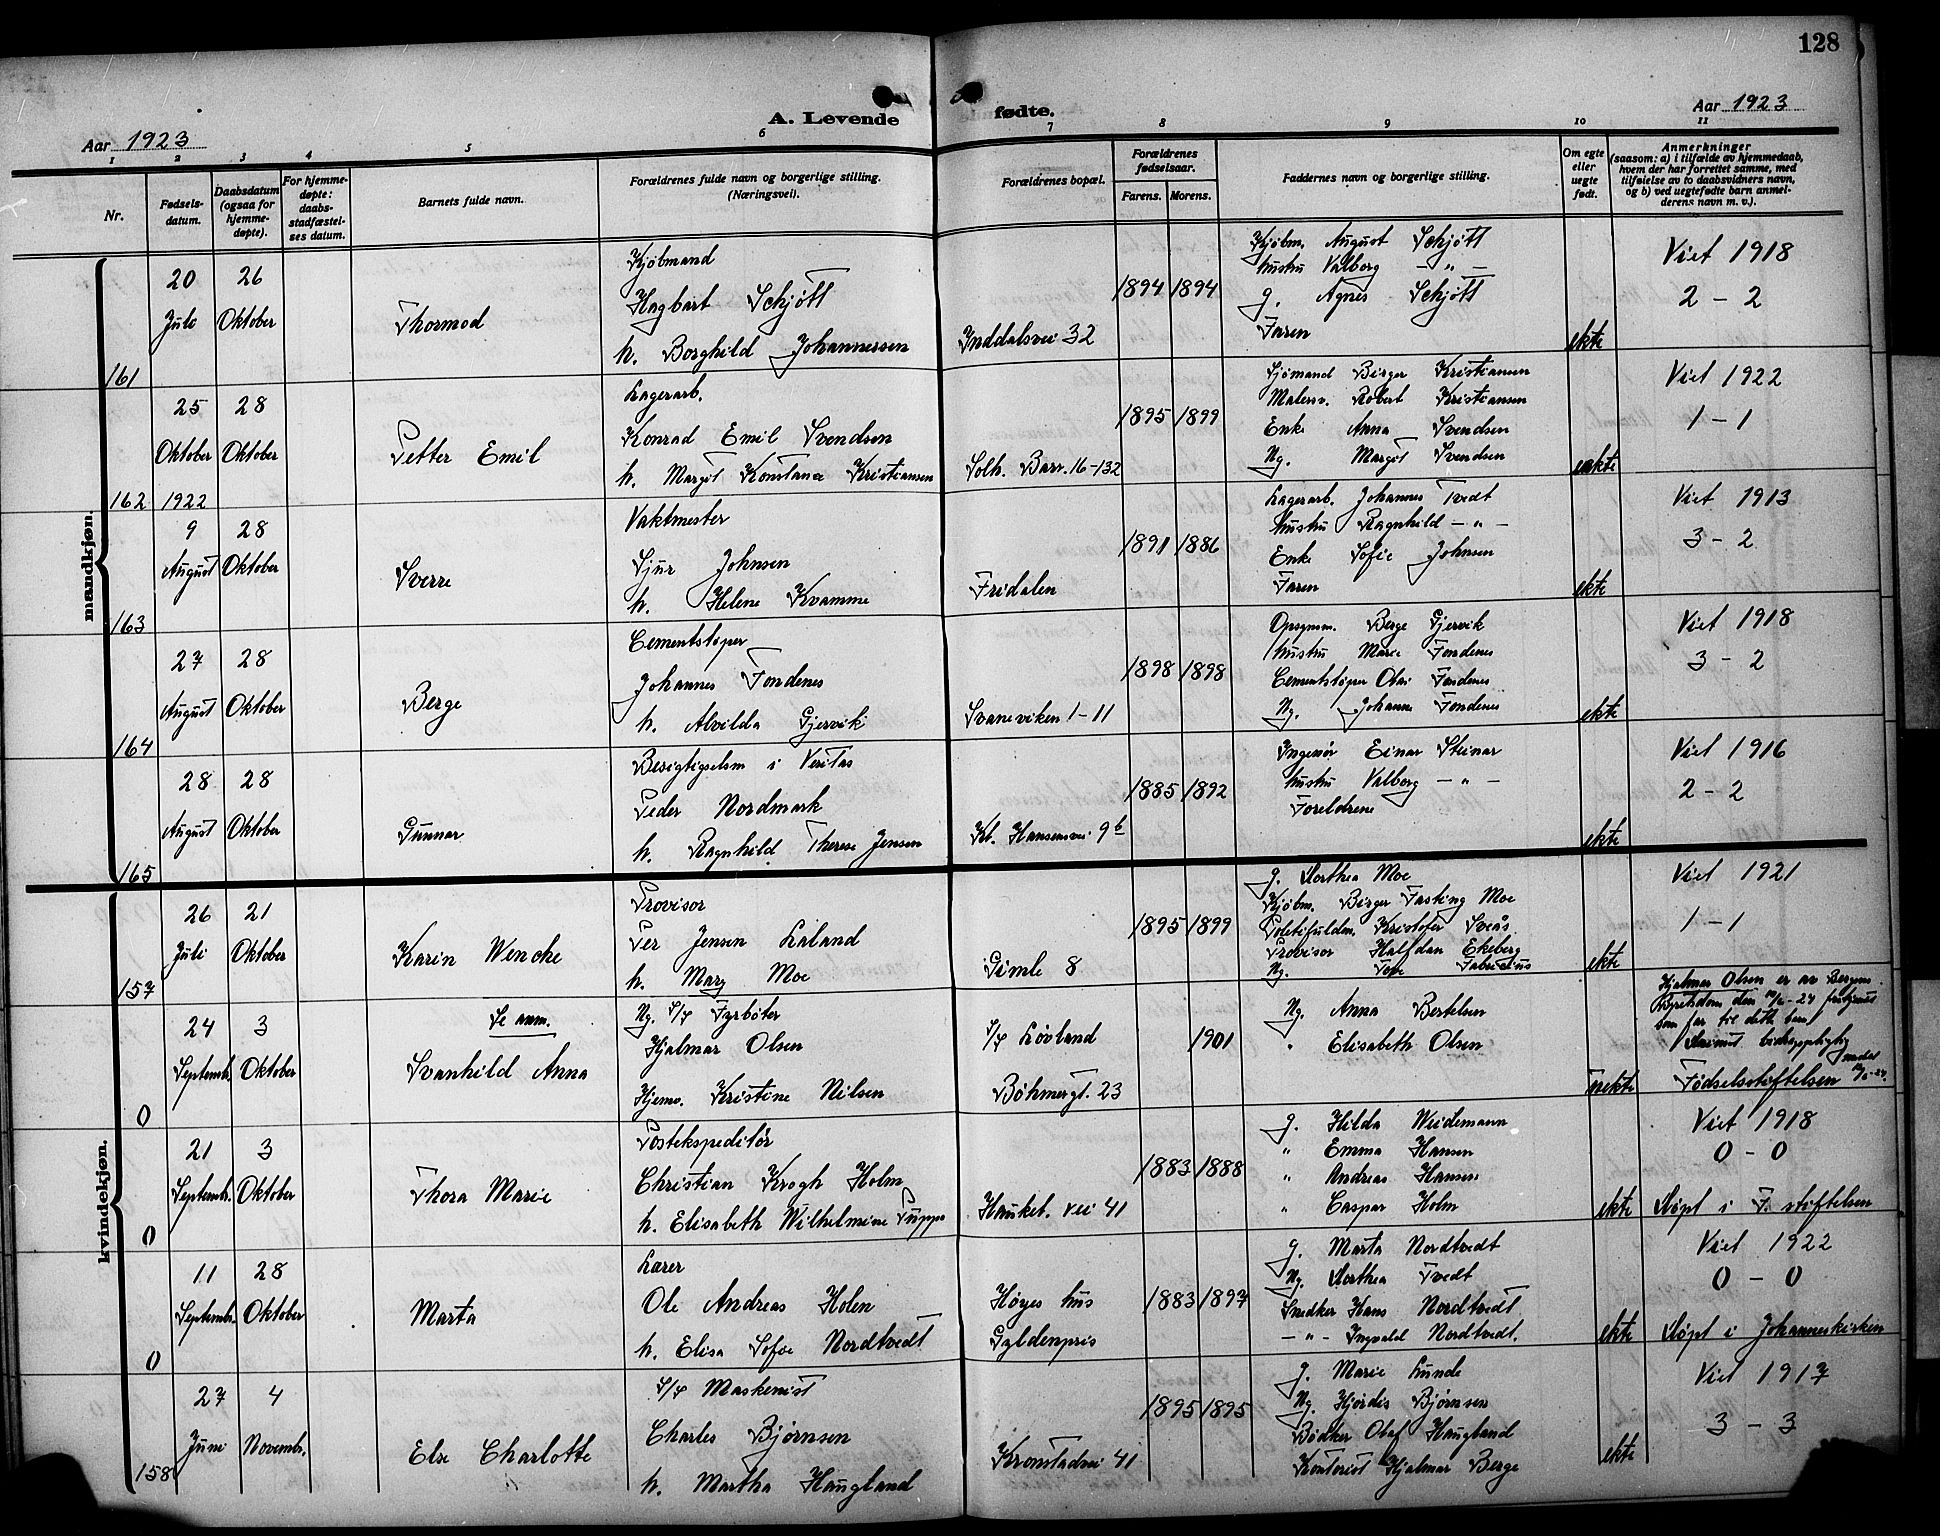 128
A. Levende fødte.
Aar 1923
Aar 1923
1 2 3 4 5 6 7 8 9 10 11
Nr.
Fødsels-
datum.
Daabsdatum
(ogsaa for
hjemme-
døpte).
For hjemme-
døpte:
daabs-
stadfæstel-
ses datum.
Barnets fulde navn.
Forældrenes fulde navn og borgerlige stilling.
(Næringsvei).
Forældrenes bopæl.
Forældrenes
fødselsaar.
Farens. Morens.
Faddernes navn og borgerlige stilling.
Om egte
eller
uegte
født.
Anmerkninger
(saasom: a) i tilfælde av hjemmedaab,
hvem der har forrettet samme, med
tilføielse av to daabsvidners navn,
og b) ved uegtefødte barn anmel-
derens navn m. v.).
mandkjøn.
161
20 Juli
26 Oktober
Thormod
Kjøbmand
Hagbart Schjøtt
h. Borghild Johannessen
Inddalsvei 32
1894 1894
Kjøbm. August Schjøtt
hustru Valborg — " —
g. Agnes Schjøtt
Faren
ekte
Viet 1918
2 - 2
162
25 Oktober
28 Oktober
Petter Emil
Lagerarb.
Konrad Emil Svendsen
h. Margit Konstance Kristiansen
Solh. Barr. 16-132
1895 1899
Sjømand Birger Kristiansen
Malersv. Robert Kristiansen
Enke Anna Svendsen
Ug. Margit Svendsen
ekte
Viet 1922
1 - 1
163
1922
9 August
28 Oktober
Sverre
Vaktmester
Sjur Johnsen
h. Helene Kvamme
Fridalen
1891 1886
Lagerarb. Johannes Tvedt
hustru Ragnhild — " —
Enke Sofie Johnsen
Faren
ekte
Viet 1913
3 - 2
164
27 August
28 Oktober
Berge
Cementstøper
Johannes Fondenes
h. Alvilda Gjervik
Svaneviken 1-11
1898 1898
Opsynsm. Berge Gjervik
hustru Marie Fondenes
Cementstøper Olai Fondenes
Ug. Johanne Fondenes
ekte
Viet 1918
3 - 2
165
28 August
28 Oktober
Gunnar
Besigtigelsm i Veritas
Peder Nordmark
h. Ragnhild Therese Jensen
Kl. Hansensvei 9b
1885 1892
Ingeniør Einar Steinar
hustru Valborg — " —
Foreldrene
ekte
Viet 1916
2 - 2
kvindekjøn.
157
26 Juli
21 Oktober
Karin Wencke
Provisor
Per Jensen Laland
h. Mary Moe
Gimle 8
1895 1899
g. Dorthea Moe
Kjøbm. Birger Fasting Moe
Politifuldm. Kristofer Sveås
Provisor Halfdan Ekeberg
Ug. Tove Fabricius
ekte
Viet 1921
1 - 1
0
24 Septemb.
3 Oktober
Se anm.
Svanhild Anna
Ug. S/S Fyrbøter
Hjalmar Olsen
Hjemv. Kristine Nilsen
S/S Løvland
Böhmergt. 23
1901
Ug. Anna Bertelsen
" Elisabeth Olsen
uekte
Hjalmar Olsen er av Bergens
Byretsdom den
som far til dette barn
bidragspligtig
Fødselsstiftelsen
0
21 Septemb.
3 Oktober
Thora Marie
Postekspeditør
Christian Krogh Holm
h. Elisabeth Wilhelmine Puppe
Hauket. vei 41
1883 1888
g. Hilda Weidemann
" Emma Hansen
" Andreas Hansen
" Caspar Holm
ekte
Viet 1918
0 - 0
Døpt i F. stiftelsen
0
11 Septemb.
28 Oktober
Marta
Lærer
Ole Andreas Holen
h. Elisa Sofie Nordtvedt
Høyes hus
Gyldenpris
1883 1897
g. Marta Nordtvedt
Ug. Dorthea Tvedt
Snedker Hans Nordtvedt
— " — Ingvald Nordtvedt.
ekte
Viet 1922
0 - 0
Døpt i Johanneskirken
158
27 Juni
4 Novemb.
Else Charlotte
S/S Maskenist
Charles Bjørnsen
h. Martha Haugland
Kronstadvei 41
1895 1895
g. Marie Lunde
Ug. Hjørdis Bjørnsen
Bødker Olaf Haugland
Kontorist Hjalmar Berge
ekte
Viet 1917
3 - 3